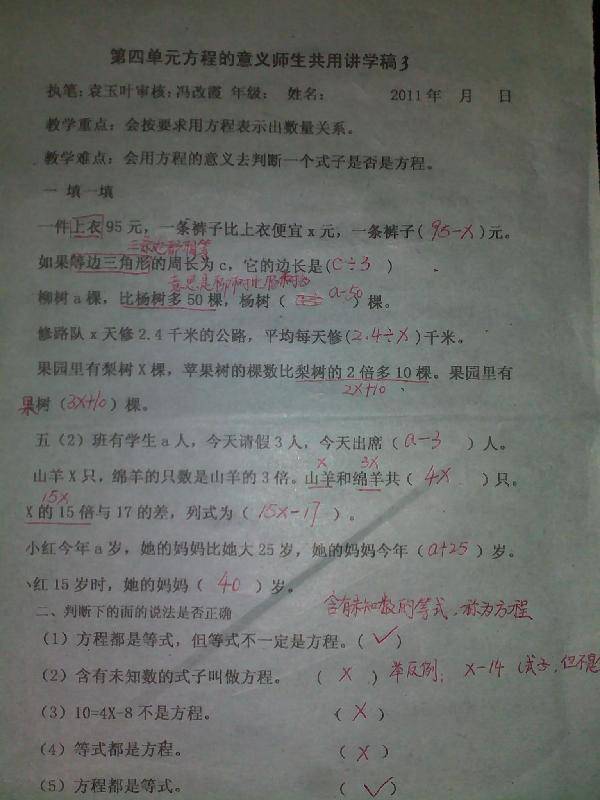 第四单元方程的意义师生共用讲学稿3
执笔:袁玉叶审核:冯改霞 年级: 姓名: 2011年 月 日
教学重点: 会按要求用方程表示出数量关系。
教学难点: 会用方程的意义去判断一个式子是否是方程。
一 填一填
一件上衣95元,一条裤子比上衣便宜x元,一条裤子(95-x)元。
三条边都相等
如果等边三角形的周长为c,它的边长是(C÷3)
意思是柳树比杨树多
柳树a棵,比杨树多50棵,杨树( a-50 )棵。
修路队x天修2.4千米的公路,平均每天修(2.4÷X)千米。
果园里有梨树X棵,苹果树的棵数比梨树的2倍多10棵。果园里有
2X+10
果树(3X+10)棵。
五(2)班有学生a人,今天请假3人,今天出席(a-3)人。
x 3X
山羊X只,绵羊的只数是山羊的3倍。山羊和绵羊共(4X)只。
15X
X的15倍与17的差,列式为(15X-17)。
小红今年a岁,她的妈妈比她大25岁,她的妈妈今年(a+25)岁。
小红15岁时,她的妈妈(40)岁。
含有未知数的等式,称为方程
二、判断下的面的说法是否正确
(1)方程都是等式,但等式不一定是方程。(✓)
(2)含有未知数的式子叫做方程。 (×) 举反例: X-14 (式子,但不是
(3)10=4X-8不是方程。 (×)
(4)等式都是方程。 (×)
(5)方程都是等式。 (✓)